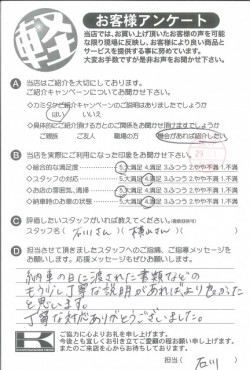 軽
お客様アンケート
当店では、お買い上げ頂いたお客様の声を可能
な限り現場に反映し、お客様により良い商品と
サービスを提供する事に努めています。
大変お手数ですが是非お声をお聞かせ下さい。
A 当店はご紹介を大切にしております。
ご紹介キャンペーンについてお聞かせ下さい。
ご紹介キャンペーンのご説明はありましたでしょうか
はい いいえ
◇具体的にご紹介頂ける方との関係をお聞かせ頂けますでしょうか
ご親族 ご友人 職場の方 機会があれば紹介したい
B 当店を実際にご利用になった印象をお聞かせ下さい。
◇総合的な満足度 5.大満足 4.満足 3.ふつう 2.やや不満 1.不満
◇スタッフの対応 5.大満足 4.満足 3.ふつう 2.やや不満 1.不満
◇お店の雰囲気、清掃 5.大満足 4.満足 3.ふつう 2.やや不満 1.不満
◇納車時のお車の状態 5.大満足 4.満足 3.ふつう 2.やや不満 1.不満
C 評価したいスタッフがいれば教えてください。
スタッフ名( 石川さん )( 横山さん )
D 担当させて頂きましたスタッフへのご指摘、ご信頼メッセージを
お願いします。応援メッセージもお願いします。
納車の日に渡された書類などの
もう少し丁寧な説明があればより良かった
と思います。
丁寧な対応ありがとうございました。
K
ご協力に心よりお礼を申し上げます。
今後とも宜しくお引き立てご愛顧の程お願い申し上げます。
またのご来店を心からお待ちしております。
担当( 石川 )